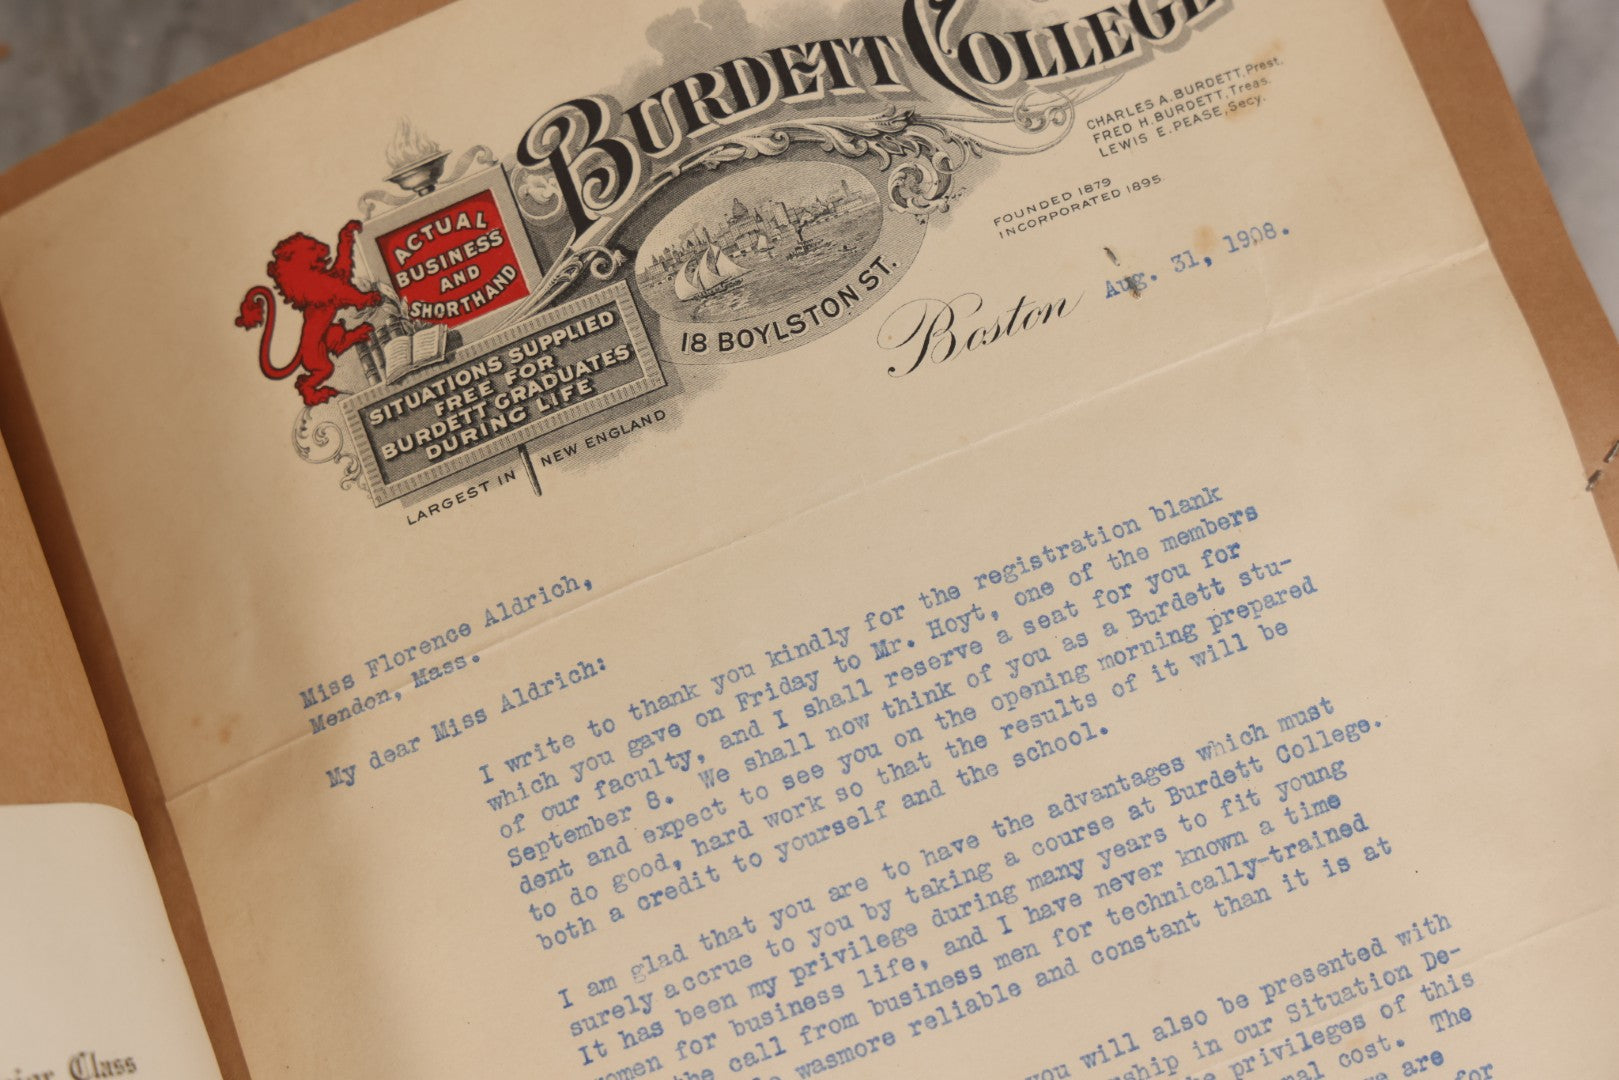 BURDETT COLLEGE
CHARLES A. BURDETT, Prest.
FRED H. BURDETT, Treas.
LEWIS E. PEASE, Secy.
FOUNDED 1879
INCORPORATED 1895
ACTUAL
BUSINESS
AND
SHORTHAND
SITUATIONS SUPPLIED
FREE FOR
BURDETT GRADUATES
DURING LIFE
LARGEST IN NEW ENGLAND
18 BOYLSTON ST.
Boston Aug. 31, 1908.
Miss Florence Aldrich,
Mendon, Mass.
My dear Miss Aldrich:
I write to thank you kindly for the registration blank
which you gave on Friday to Mr. Hoyt, one of the members
of our faculty, and I shall reserve a seat for you for
September 8. We shall now think of you as a Burdett stu-
dent and expect to see you on the opening morning prepared
to do good, hard work so that the results of it will be
both a credit to yourself and the school.
I am glad that you are to have the advantages which must
surely accrue to you by taking a course at Burdett College.
It has been my privilege during many years to fit young
women for business life, and I have never known a time
the call from business men for technically-trained
wasmore reliable and constant than it is at
you will also be presented with
in our Situation De-
privileges of this
cost. The
are
for
Class